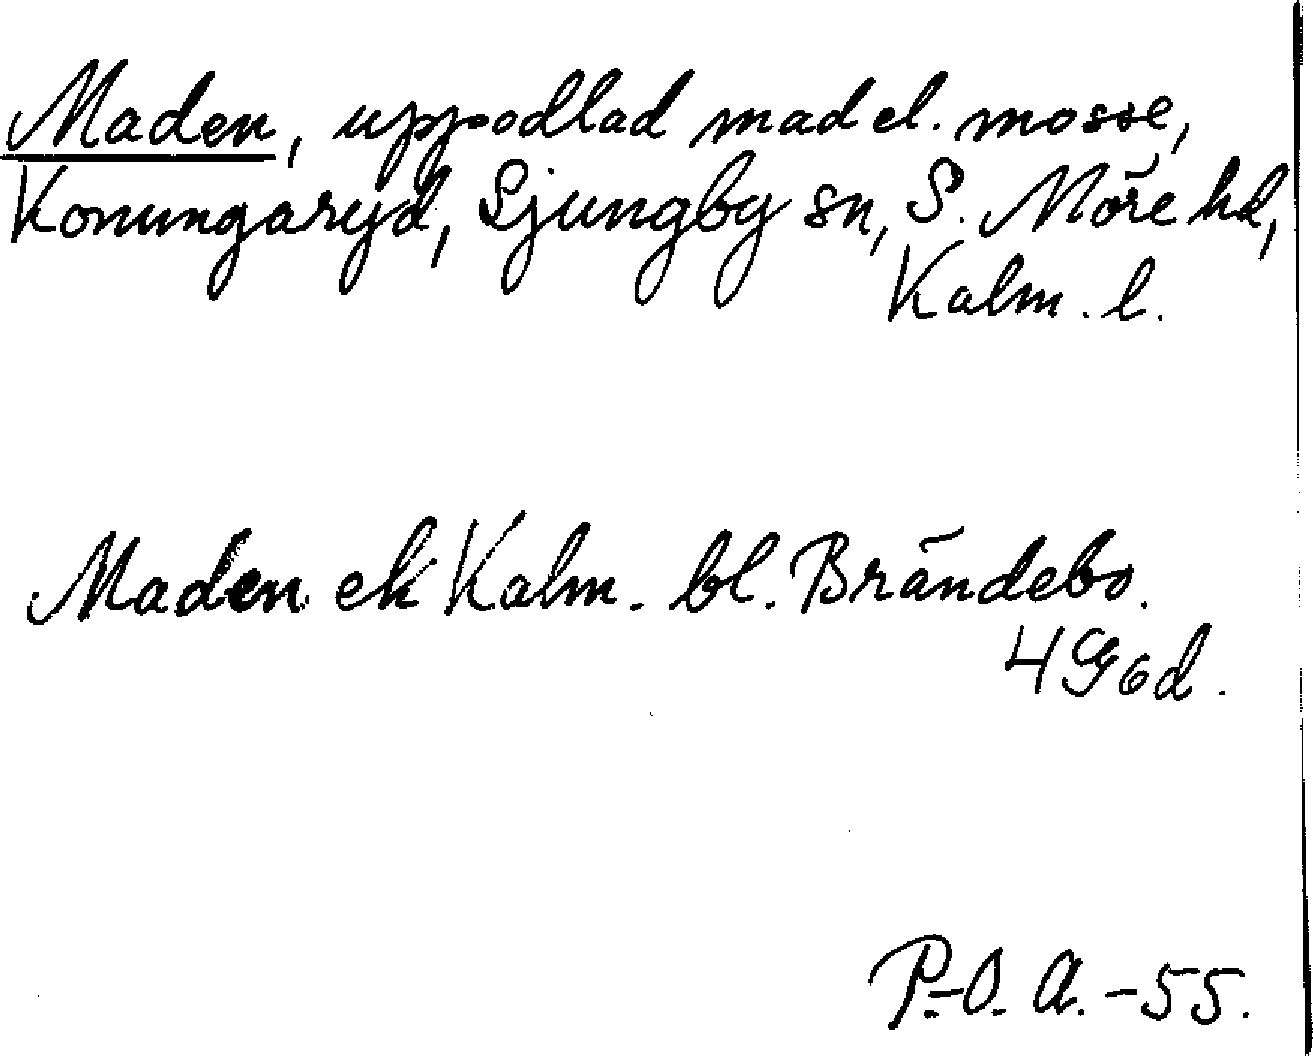 Maden, uppodlad mad el. mosse,
Konungaryd, Ljungby sn, S. Möre hd,
Kalm. l.
Maden ek Kalm. bl. Brändebo.
4 God.
P.-O. A. -55.